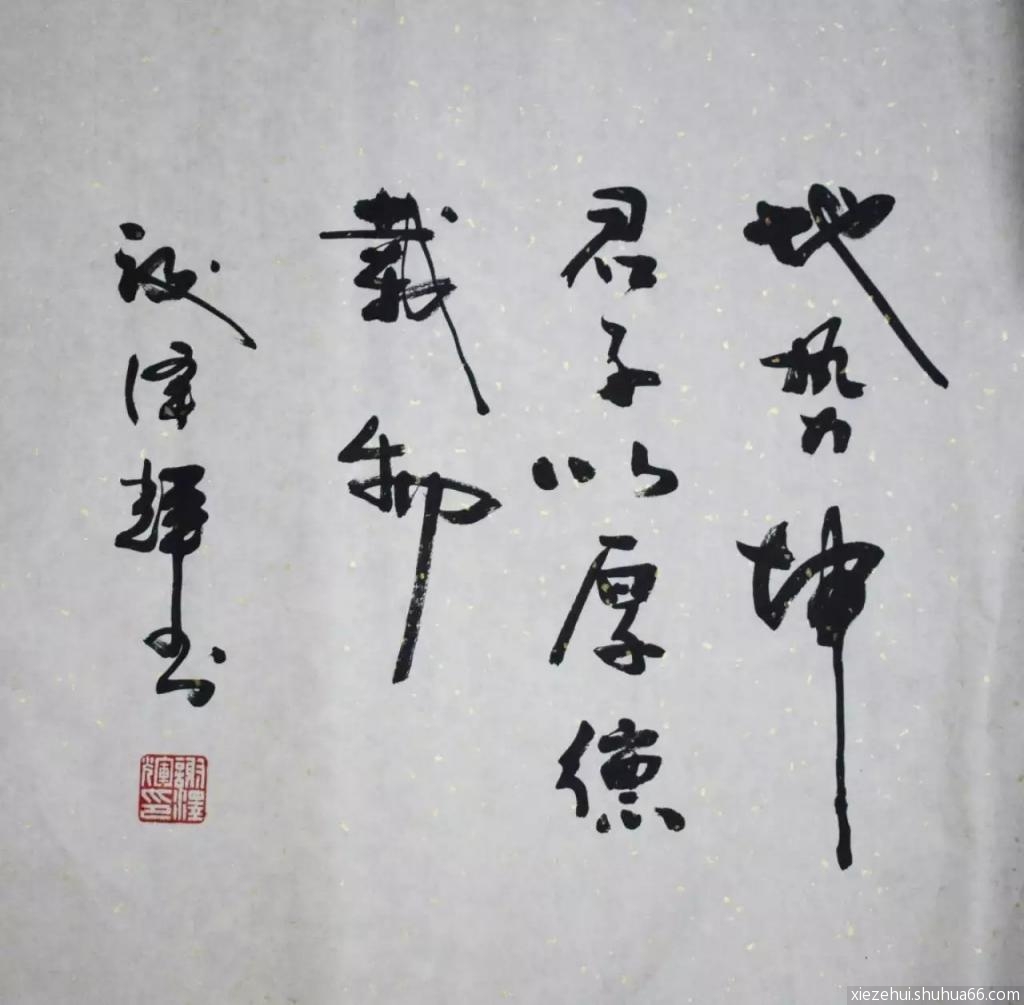 地势坤
君子以厚德
载物
谢泽辉书
謝澤輝印
xiezehui.shuhua66.com